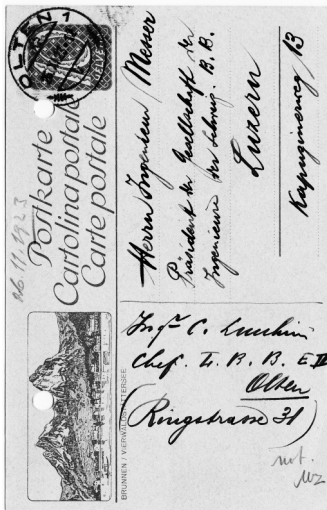 OLTEN 1
Postkarte
Cartolina postale
Carte postale
26.11.1923
BRUNNEN / VIERWALDSTÄTTERSEE
Herrn Ingenieur Messer
Präsident der Gesellschaft der
Ingenieure der Schweiz. B. B.
Luzern
Kapuzinerweg 13
Ingr C. Lucchini
Chef. L. B. B. E II
Olten
(Ringstrasse 31)
not.